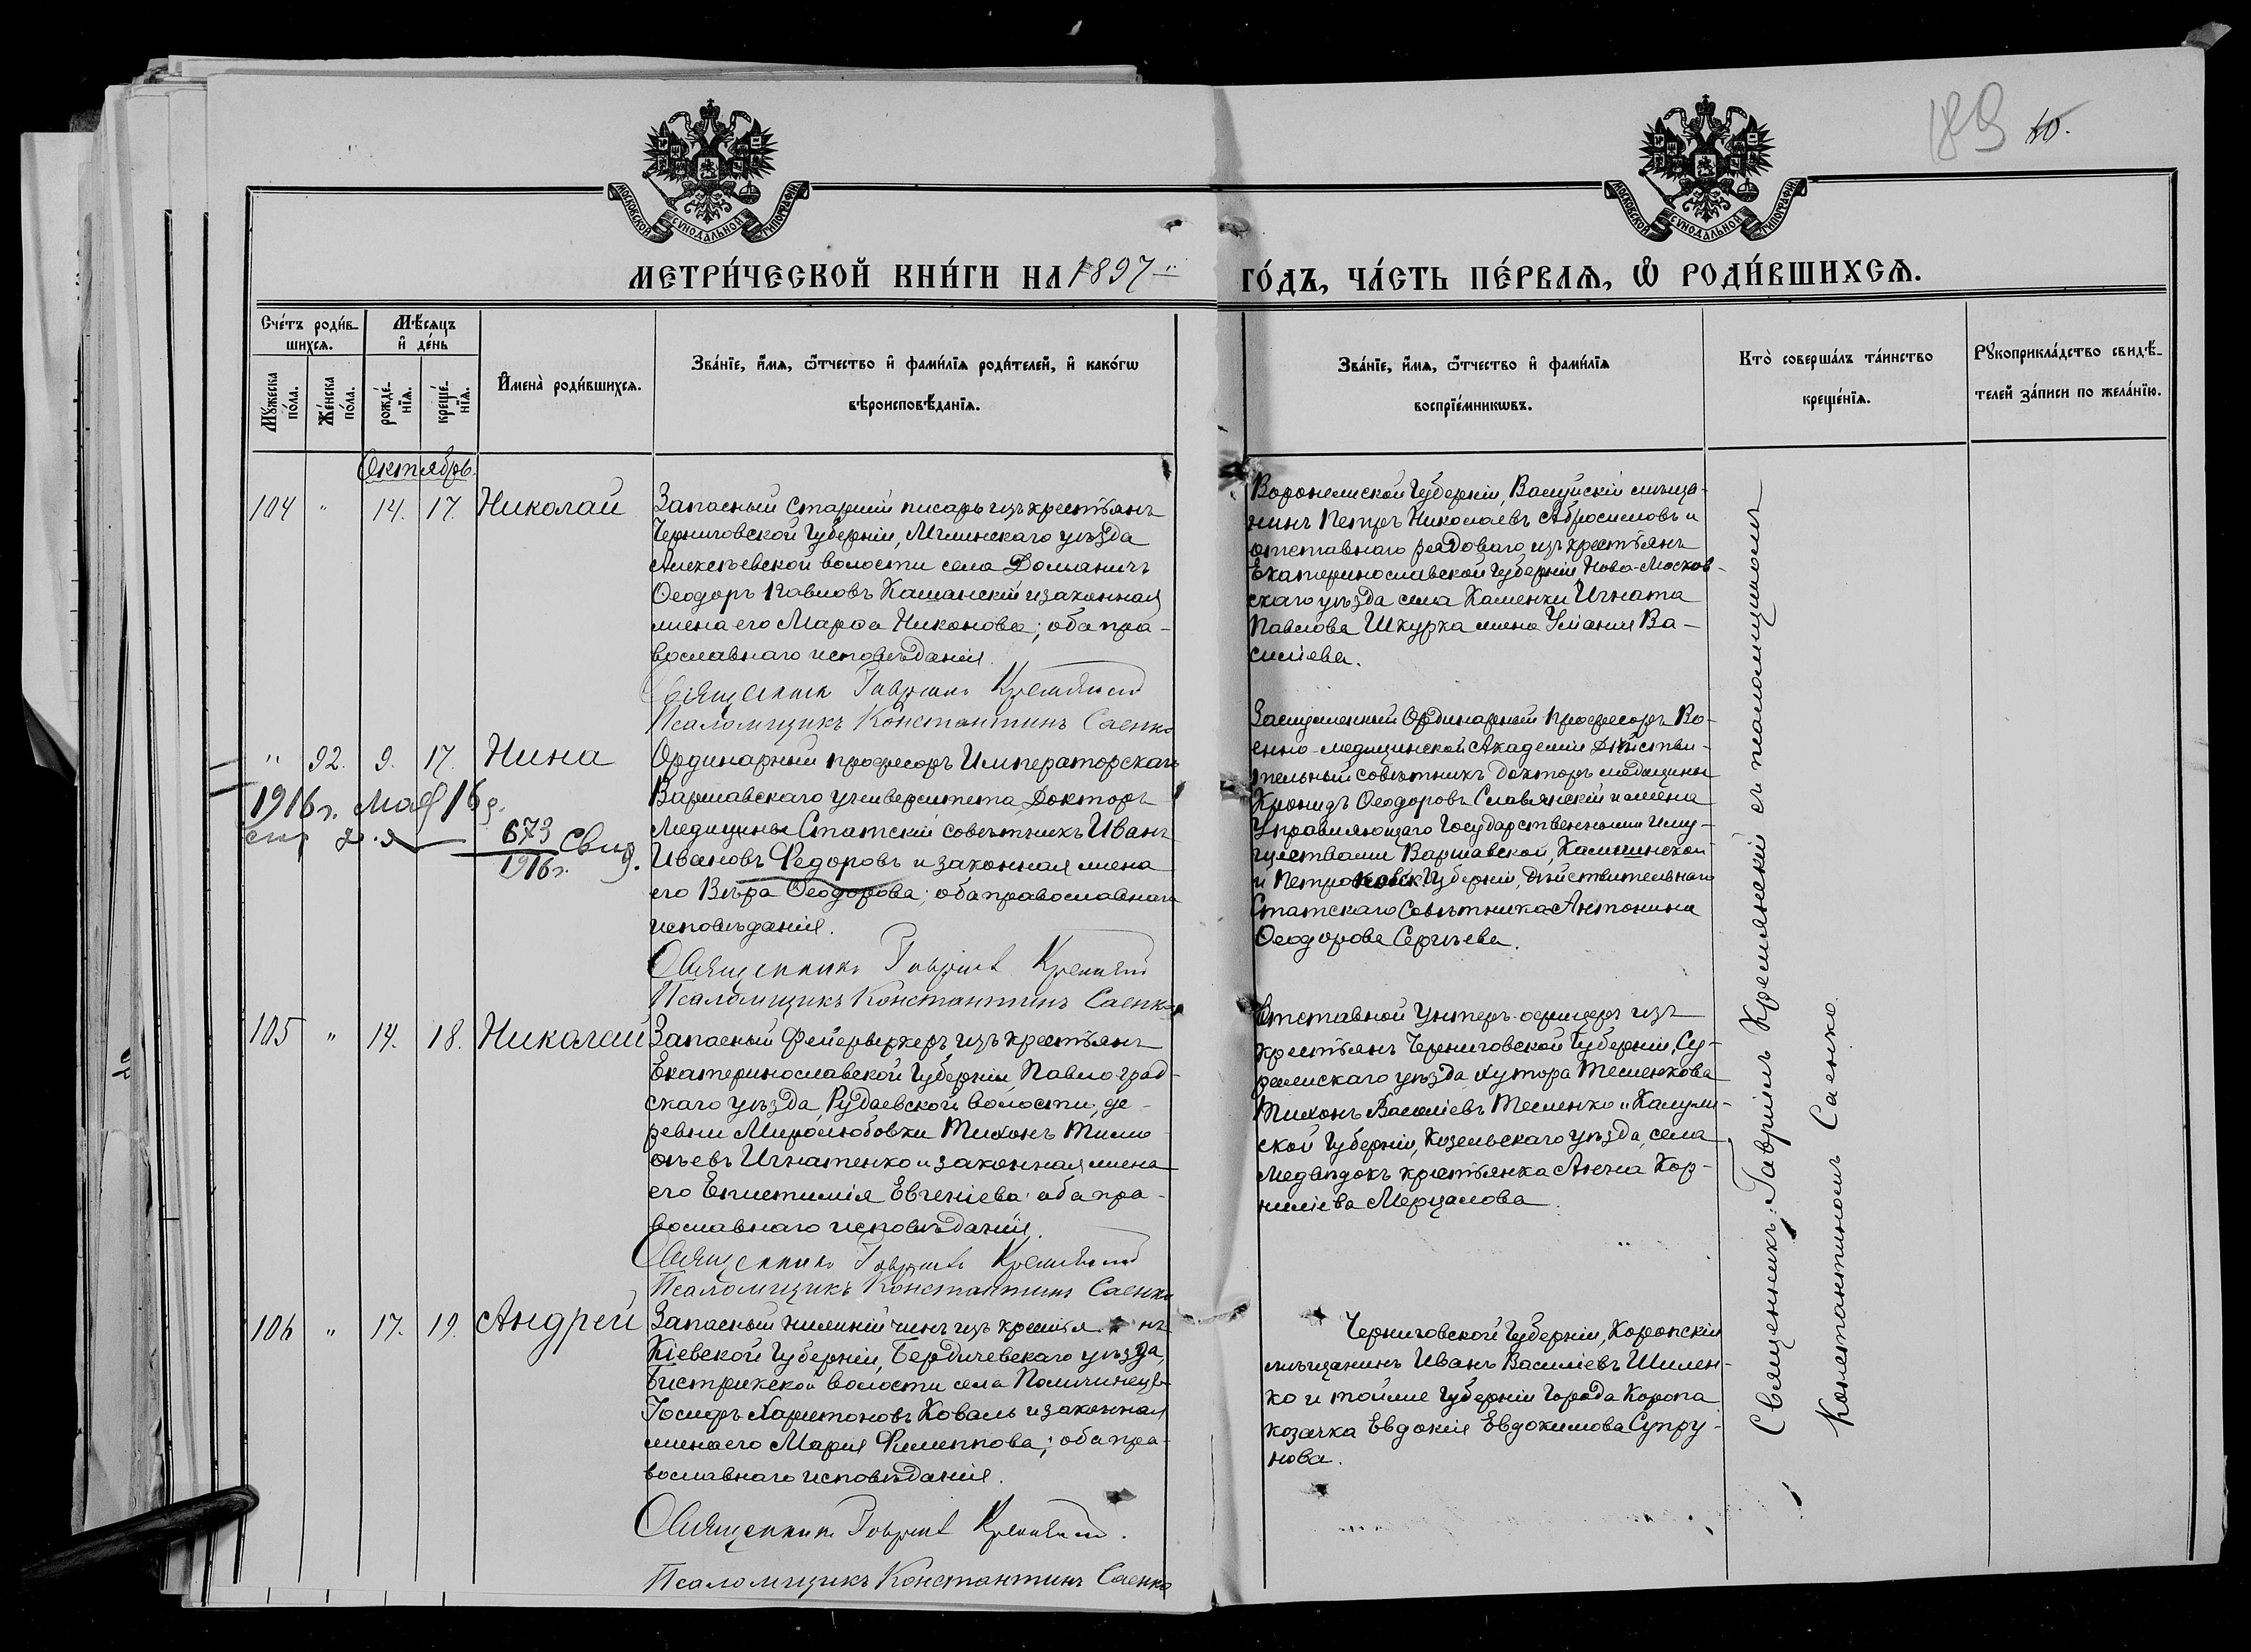 189 10.
МОСКОВСКОЙ СѴНОДАЛЬНОЙ ТИПОГРАФІИ
МОСКОВСКОЙ СѴНОДАЛЬНОЙ ТИПОГРАФІИ
МЕТРИ́ЧЕСКОЙ КНИ́ГИ НА 1897
ГО́ДЪ, ЧА́СТЬ ПЕ́РВАѦ, Ѽ РОДИ́ВШИХСѦ.
Сче́тъ роди́в-
шихсѧ.
Мѣ́сѧцъ
и҆ де́нь
Мꙋ́жеска
по́ла.
Же́нска
по́ла.
рожде́-
нїѧ.
креще́-
нїѧ.
И҆мена̀ роди́вшихсѧ.
Зва́нїе, и҆́мѧ, ѻ҆́тчество и҆ фами́лїѧ роди́телей, и҆ како́гѡ
вѣроисповѣ́данїѧ.
Зва́нїе, и҆́мѧ, ѻ҆́тчество и҆ фами́лїѧ
воспрїе́мникѡвъ.
Кто̀ соверша́лъ та́инство
креще́нїѧ.
Рꙋкоприкла́дство свидѣ́-
телей за́писи по жела́нїю.
Октябрь
104 " 14. 17. Николай
Запасный Старшій писарь изъ крестьянъ
Черниговской Губерніи, Мглинскаго уѣзда
Алексѣевской волости села Доманичъ
Ѳеодоръ Павловъ Кашанскій и законная
жена его Марѳа Никонова; оба пра-
вославнаго исповѣданія.
Священникъ Гавріилъ Кремянскій
Псаломщикъ Константинъ Саенко
Воронежской Губерніи, Валуйскій мѣща-
нинъ Петръ Николаевъ Абросимовъ и
отставнаго рядоваго изъ крестьянъ
Екатеринославской Губерніи Ново-Москов-
скаго уѣзда села Каменки Игната
Павлова Шкурка жена Уліанія Ва-
силіева.
" 92. 9. 17. Нина
1916 г. Мая 16 д.
673 Свид.
1916 г.
Ординарный профессоръ Императорскаго
Варшавскаго университета, Докторъ
Медицины Статскій совѣтникъ Иванъ
Ивановъ Ѳедоровъ и законная жена
его Вѣра Ѳеодорова; оба православнаго
исповѣданія.
Священникъ Гавріилъ Кремянскій
Псаломщикъ Константинъ Саенко
Заслуженный Ординарный профессоръ Во-
енно-медицинской Академіи Дѣйстви-
тельный совѣтникъ докторъ медицины
Кронидъ Ѳеодоровъ Славянскій и жена
Управляющаго Государственными Иму-
ществами Варшавской, Калишской
и Петроковск. Губерніи, Дѣйствительнаго
Статскаго Совѣтника Антонина
Ѳеодорова Сергѣева.
105 " 14. 18. Николай
Запасный фейерверкеръ изъ крестьянъ
Екатеринославской Губерніи, Павлоград-
скаго уѣзда, Рудаевской волости, де-
ревни Миролюбовки Тихонъ Тимо-
ѳѣевъ Игнатенко и законная жена
его Епистимія Евгеніева; оба пра-
вославнаго исповѣданія.
Священникъ Гавріилъ Кремянскій
Псаломщикъ Константинъ Саенко
Отставной унтеръ-офицеръ изъ
крестьянъ Черниговской Губерніи, Су-
ражскаго уѣзда хутора Тесленкова
Тихонъ Василіевъ Тесленко и Калуж-
ской Губерніи, Козельскаго уѣзда, села
Медвѣдокъ крестьянка Анна Кор-
ниліева Мерцалова.
106 " 17. 19. Андрей
Запасный нижній чинъ изъ крестьянъ
Кіевской Губерніи, Бердичевскаго уѣзда,
Бистрикской волости села Половинецъ
Іосифъ Харитоновъ Коваль и законная
жена его Марія Филиппова; оба пра-
вославнаго исповѣданія.
Священникъ Гавріилъ Кремянскій.
Псаломщикъ Константинъ Саенко
Черниговской Губерніи, Коропскій
мѣщанинъ Иванъ Василіевъ Шилен-
ко и тойже Губерніи Города Коропа
козачка Евдокія Евдокимова Супру-
нова.
Священникъ Гавріилъ Кремянскій съ псаломщикомъ
Константиномъ Саенко.